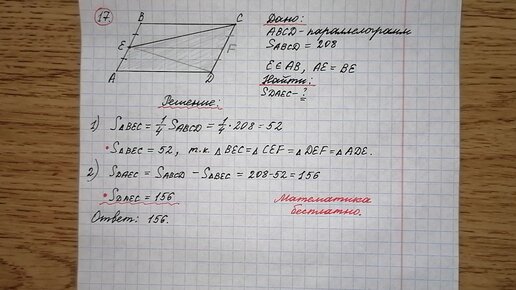 17
B C
E F
A D
Дано:
ABCD - параллелограмм
S ABCD = 208
E ∈ AB, AE = BE
Найти:
S DAEC - ?
Решение:
1) S△BEC = 1/4 S ABCD = 1/4 · 208 = 52
• S△BEC = 52, т.к. △BEC = △CEF = △DEF = △ADE.
2) S DAEC = S ABCD - S△BEC = 208 - 52 = 156
• S DAEC = 156
Ответ: 156.
Математика
бесплатно.